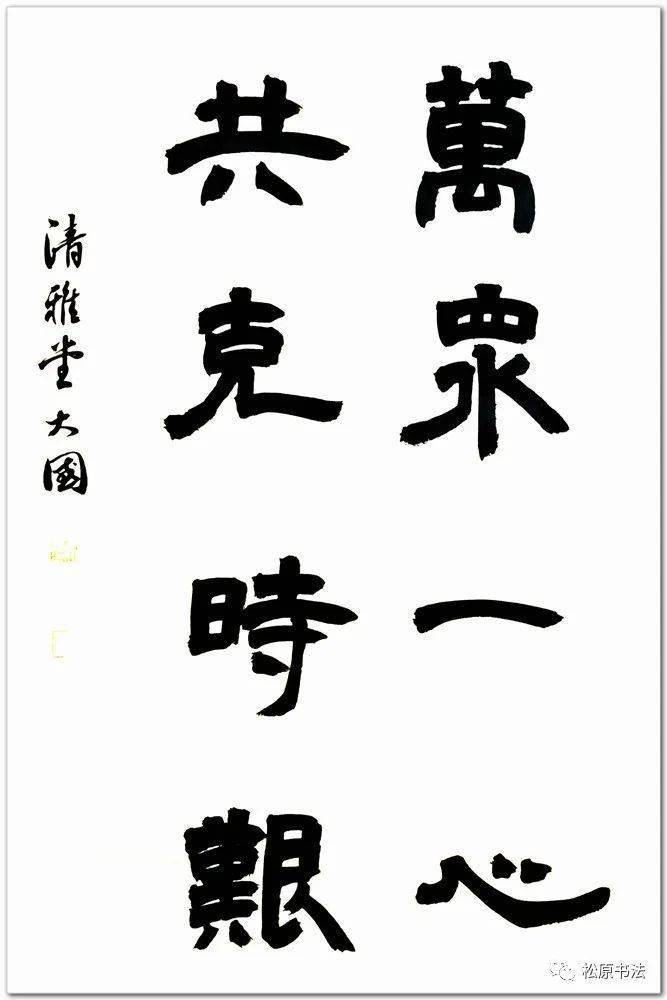 萬眾一心
共克時艱
清雅堂大國
松原书法